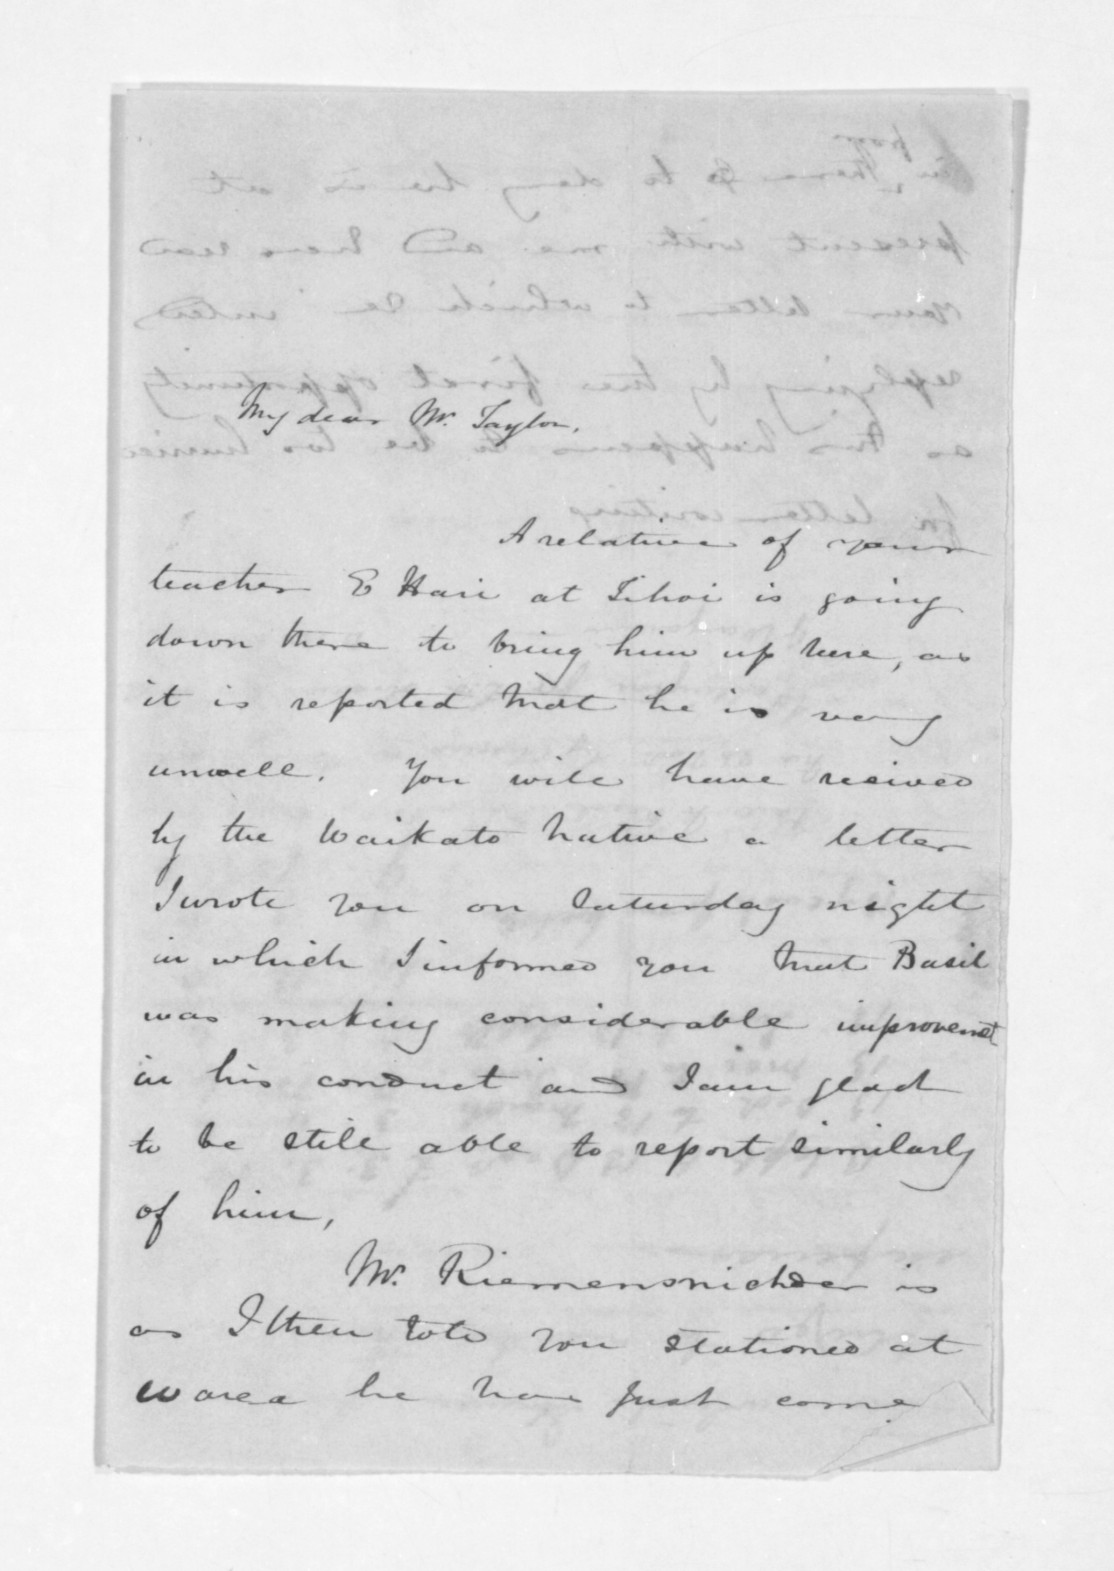 My dear Mr. Taylor,
A relative of your
teacher E Hari at Tihoi is going
down there to bring him up here, as
it is reported that he is very
unwell. You will have reeived
by the Waikato Native a letter
I wrote you on Saturday night
in which I informed you that Basil
was making considerable improvement
in his conduct and I am glad
to be still able to report similarly
of him,
Mr. Riemensnichder is
as I then told you stationed at
Warea he has just come